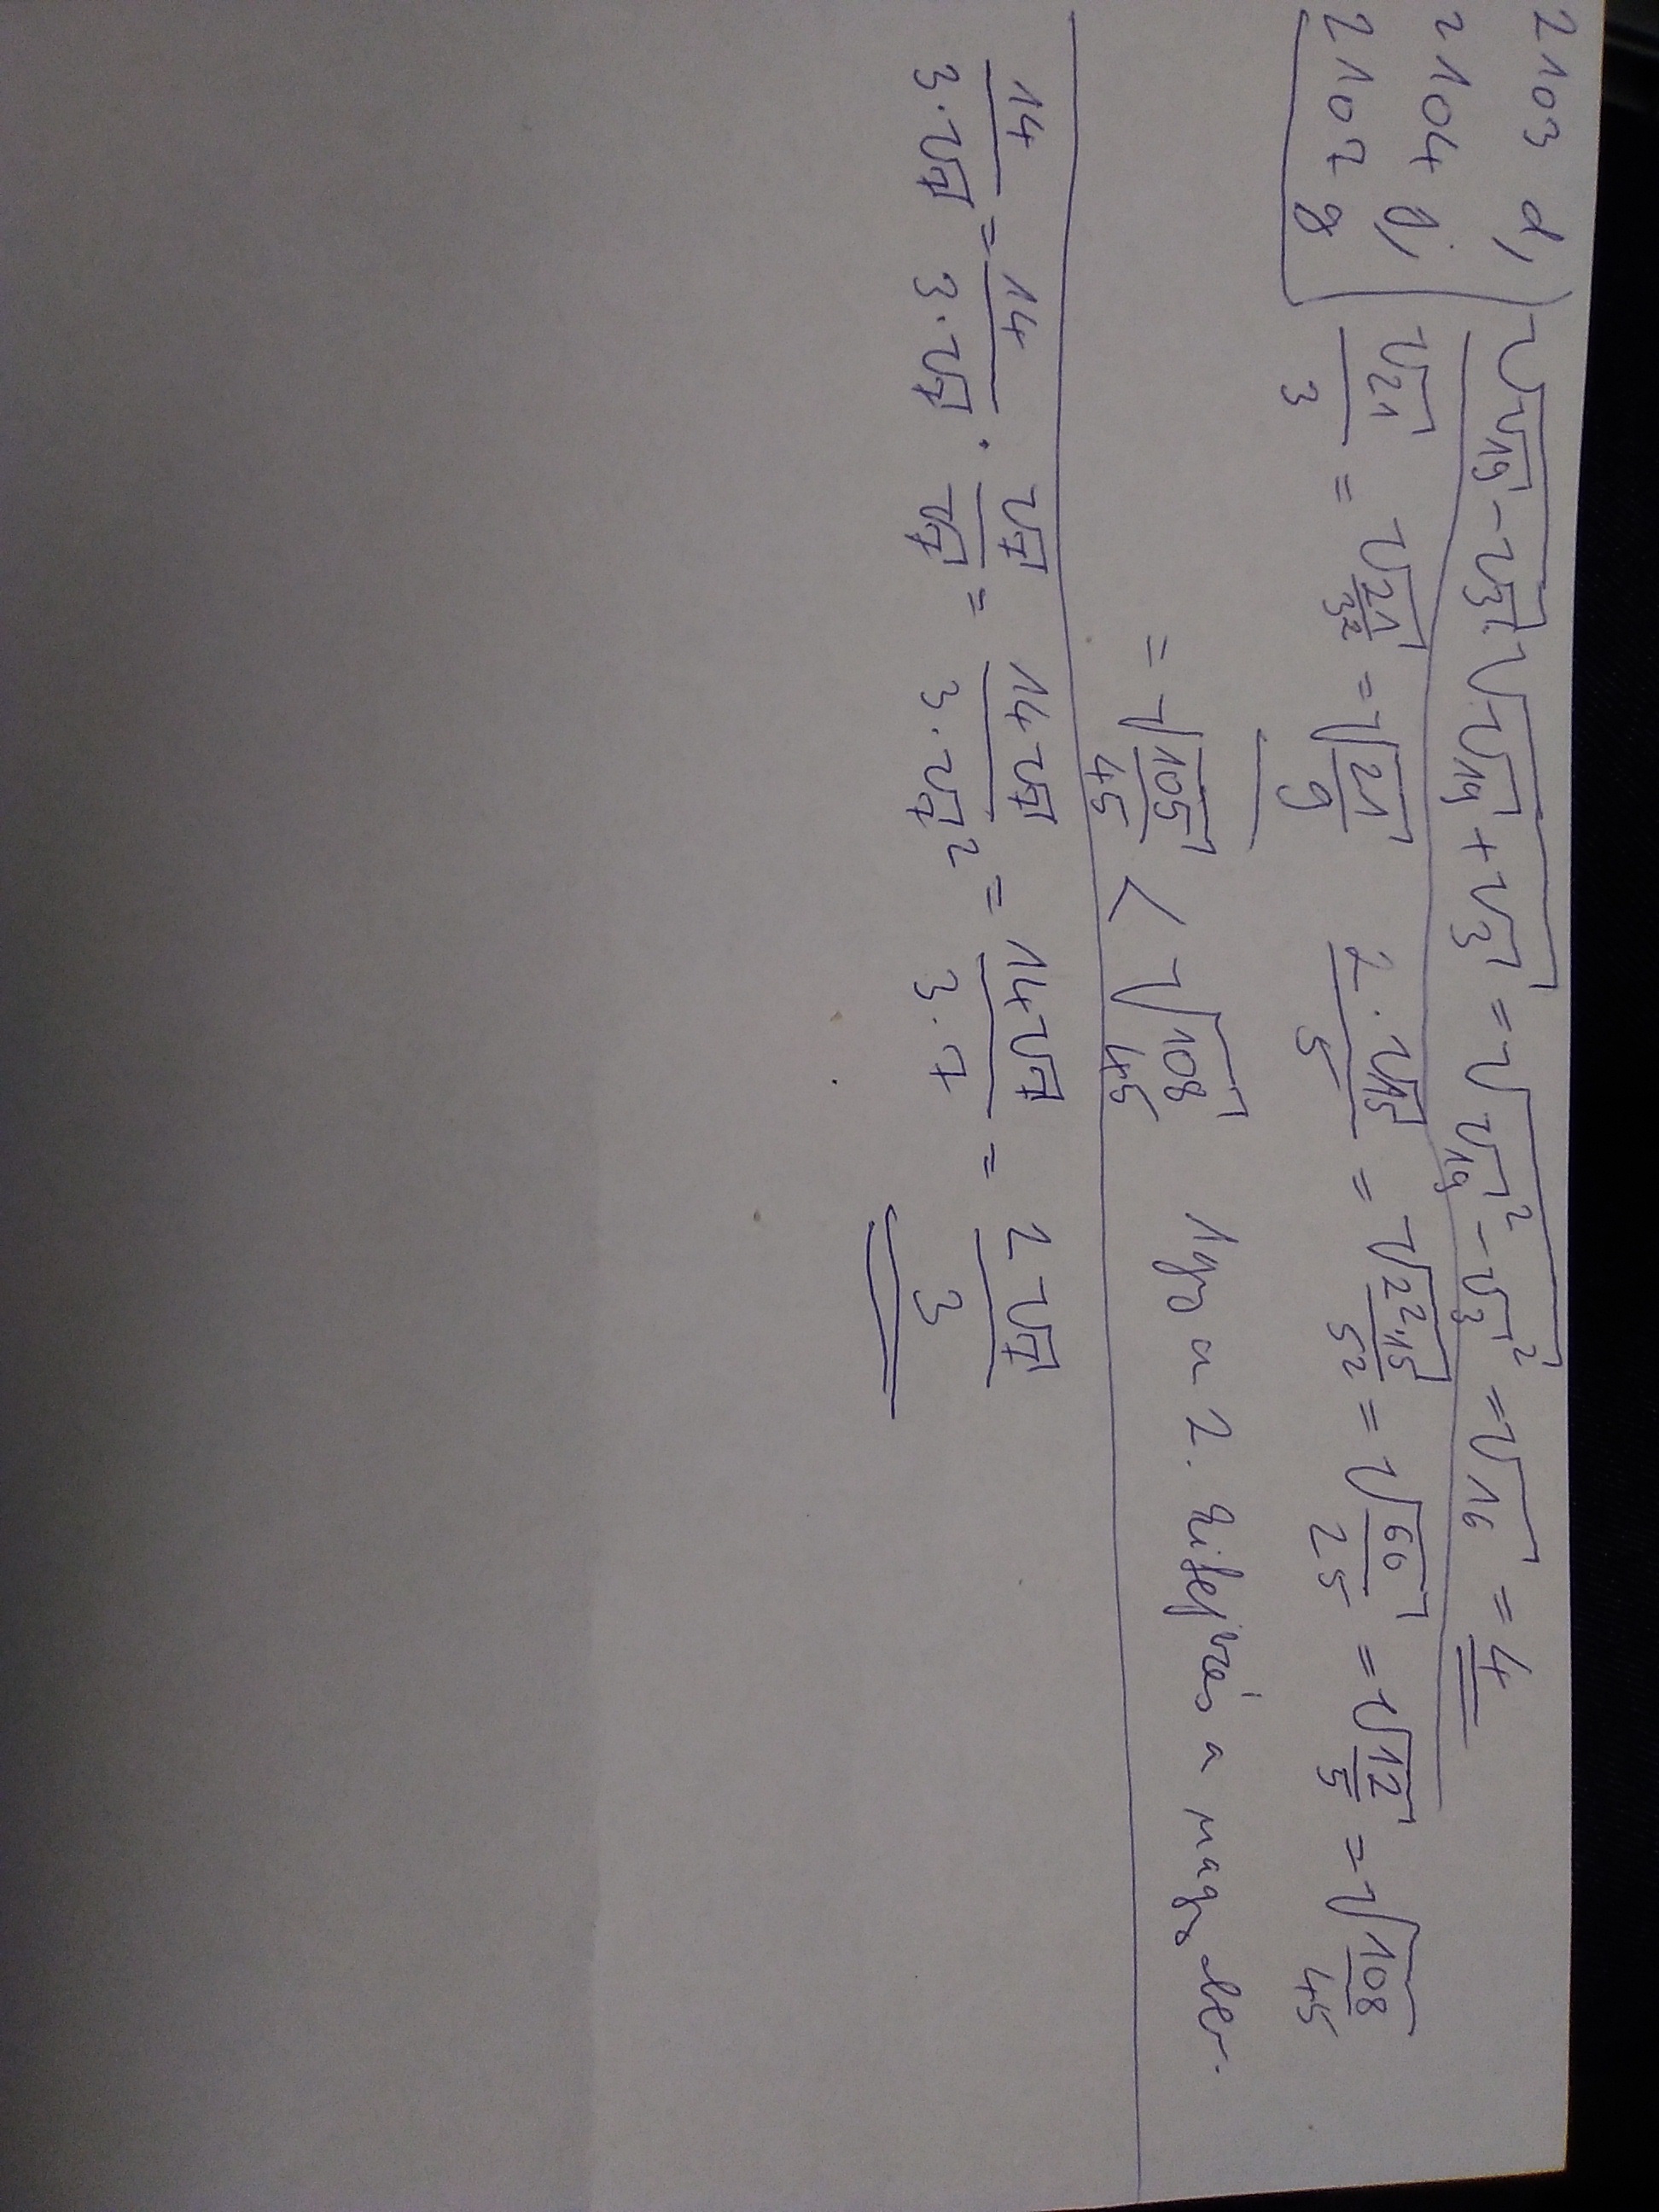 2103 d, √(√19 - √3) · √(√19 + √3) = √(√19² - √3²) = √16 = 4
2104 j, √21/3 = √(21/3²) = √(21/9) 2·√15/5 = √(2²·15/5²) = √(60/25) = √(12/5) = √(108/45)
2107 g
= √(105/45) < √(108/45) Így a 2. kifejezés a nagyobb.
14/(3·√7) = 14/(3·√7) · √7/√7 = 14√7/(3·√7²) = 14√7/(3·7) = 2√7/3